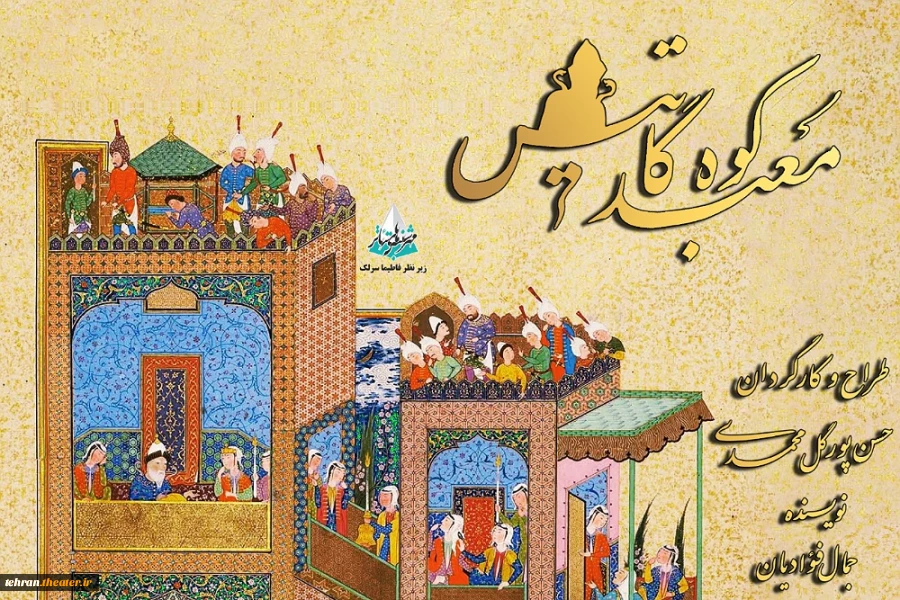 معبد کوه گاتیس
شفیره‌های تئاتر
زیر نظر فاطیما سرلک
طراح و کارگردان
حسن پورگل محمدی
نویسنده
جمال فؤادیان
tehran.theater.ir